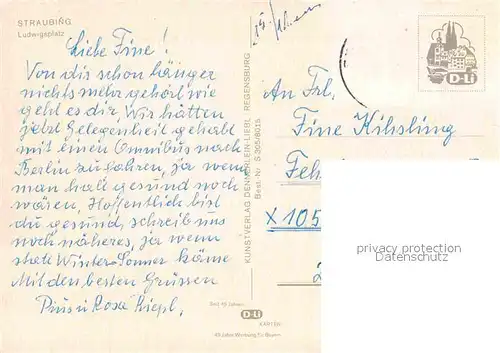 STRAUBING
Ludwigsplatz
Liebe Fine!
Von dir schon länger
nichts mehr gehört, wie
geht es dir, Wir hätten
jetzt Gelegenheit gehabt
mit einen Omnibus nach
Berlin zu fahren, ja wenn
man halt gesund noch
wären, Hoffentlich bist
du gesund, schreib uns
noch näheres, ja wenn
statt Winter Sommer käme
Mit den besten Grüssen
Pius u Rosa Riepl.
KUNSTVERLAG DENNERLEIN-LIEBL REGENSBURG
Best. Nr. S 305/8015
D-Li
An Frl.
Fine Kihsling
Feh
X 105
privacy protection
Datenschutz
Seit 45 Jahren
D-Li
KARTEN
45 Jahre Werbung für Bayern